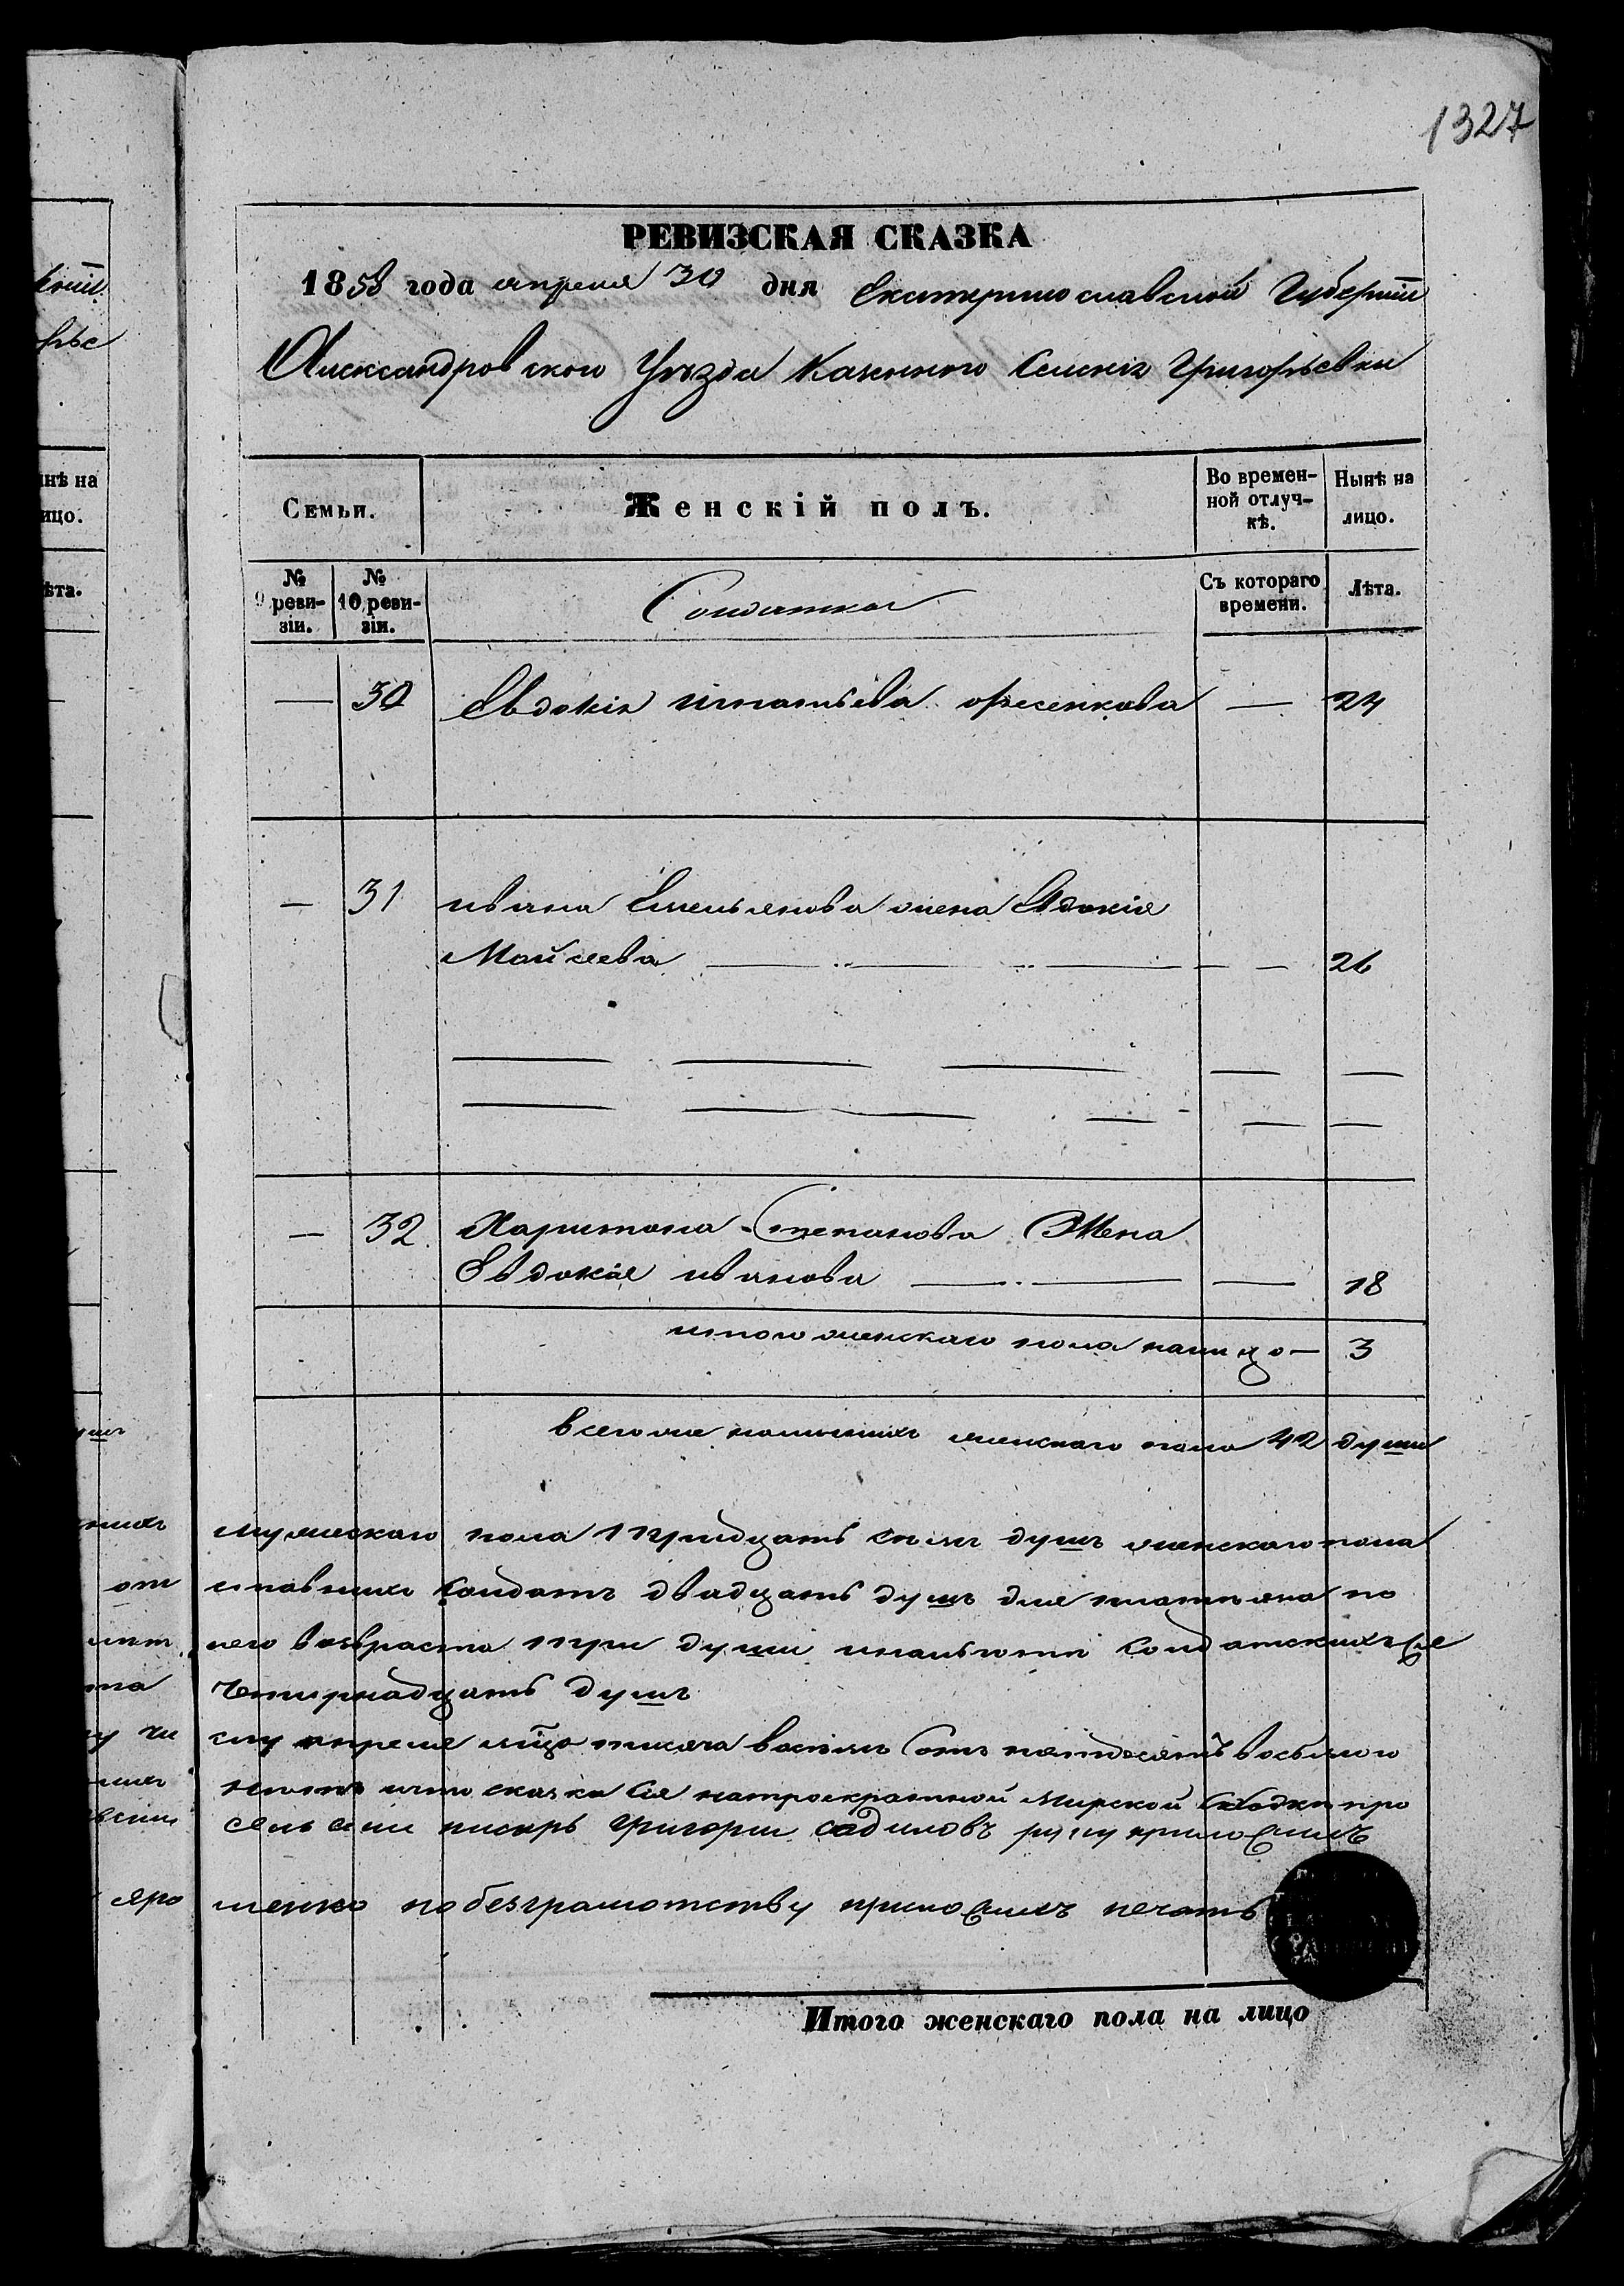 1327
РЕВИЗСКАЯ СКАЗКА
1858 года апреля 30 дня Екатеринославской Губернiи
Александровского Уѣзда Казенного Селенiя Григорьевки
нѣ на
ицо.
ѣта.
Семьи.
Женскiй полъ.
Во времен-
ной отлуч-
кѣ.
Нынѣ на
лицо.
№
9 реви-
зiи.
№
10 реви-
зiи.
Солдатка
Съ котораго
времени.
Лѣта.
— 30 Евдокiя Игнатьева Фесенкова — 24
— 31 ивана Емельянова жена Евдокiя
Мойсеева — 26
— 32 Харитона Степанова Жена
Евдокiя иванова — 18
итого женскаго пола налицо — 3
всего же наличныхъ женскаго пола 42 души
мужескаго пола тридцать семъ душъ женскаго пола
от ставныхъ солдатъ двадцать душъ для платежа по
него возвраста три души малолетн солдатскихъ
на четырнадцать душъ
у чи слу апреля мца тисяча восемь сотъ пятдесятъ восьмого
сказка сiя натроекратной мирской сходки про
сельскiй писарь Григорiи садиловъ руку приложилъ
яро шенко по безграмотству приложилъ печать
Итого женскаго пола на лицо